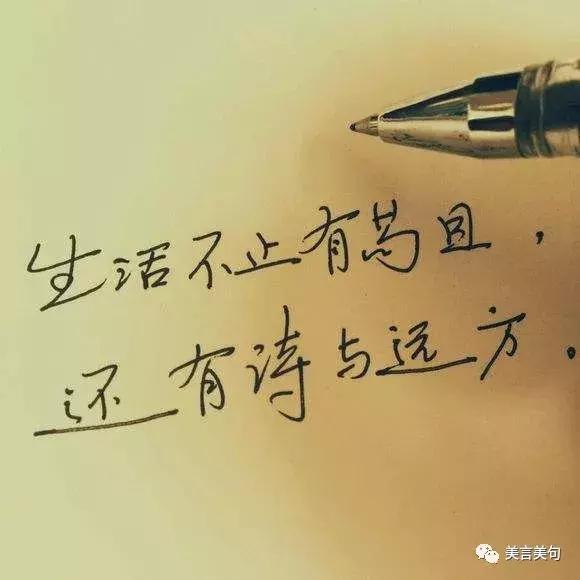 生活不止有苟且，
还有诗与远方。
美言美句